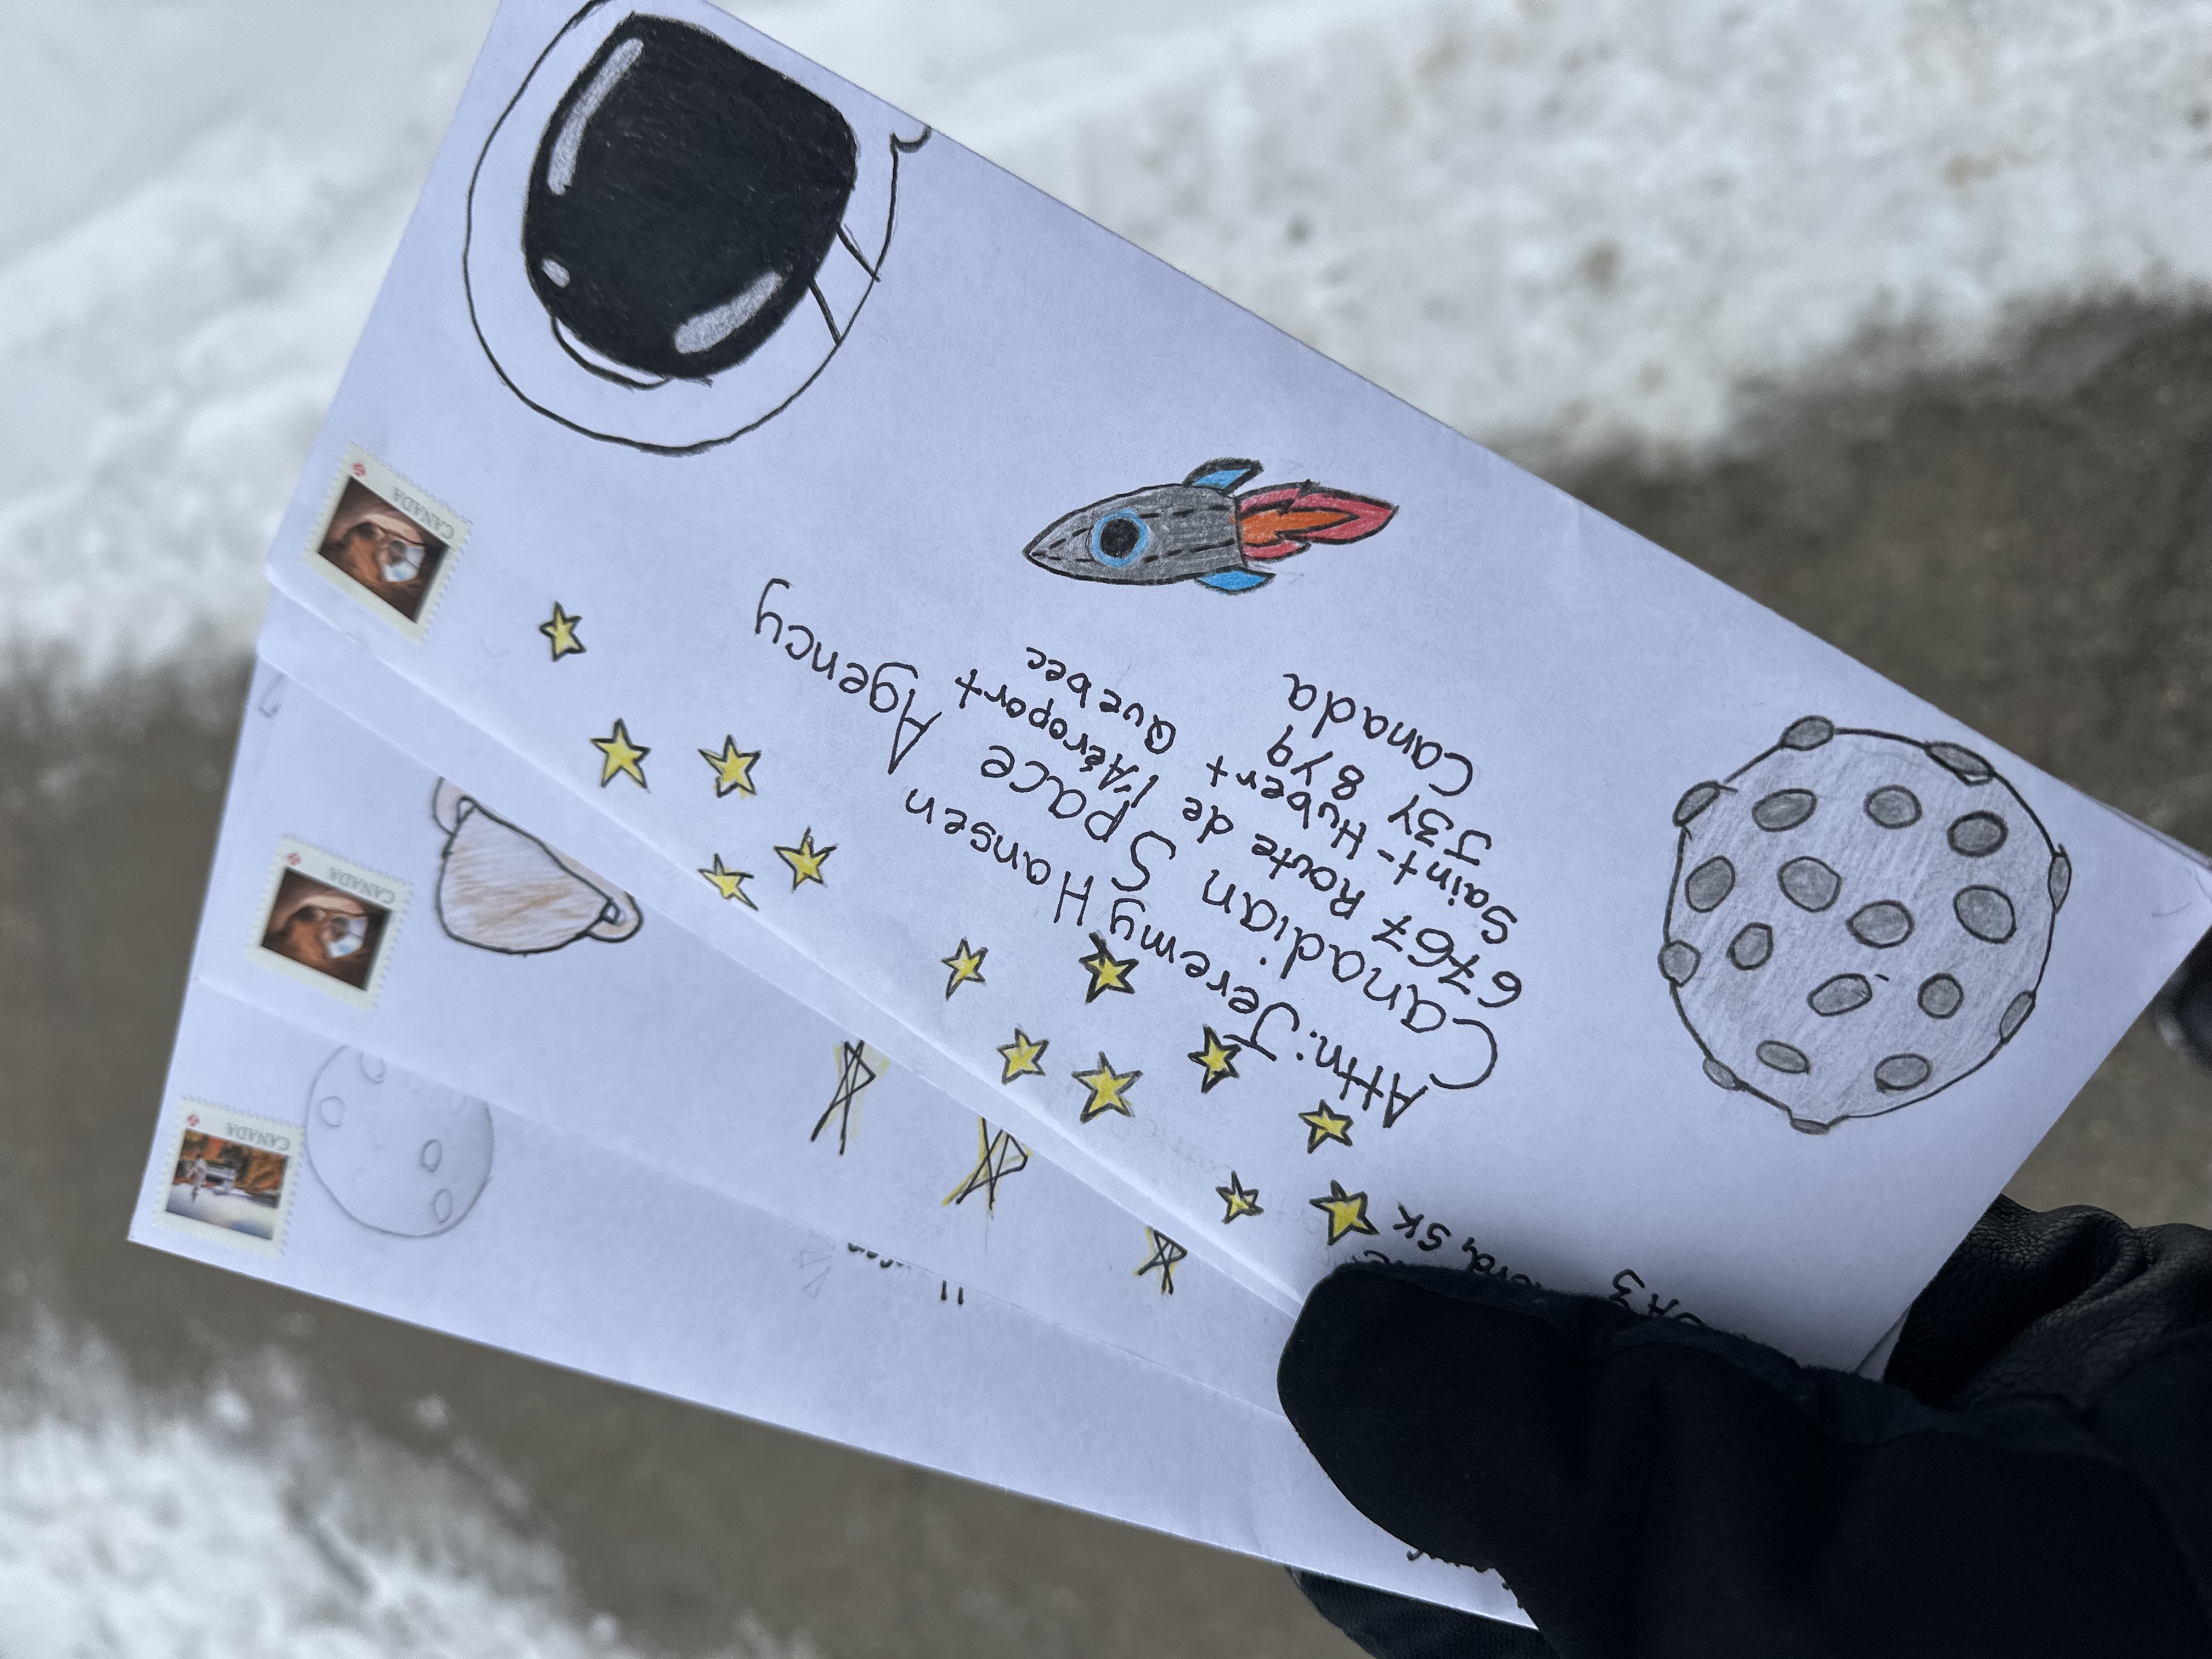 CANADA
CANADA
CANADA
Attn: Jeremy Hansen
Canadian Space Agency
6767 Route de l'Aéroport
Saint-Hubert Quebec
J3Y 8Y9
Canada
SK